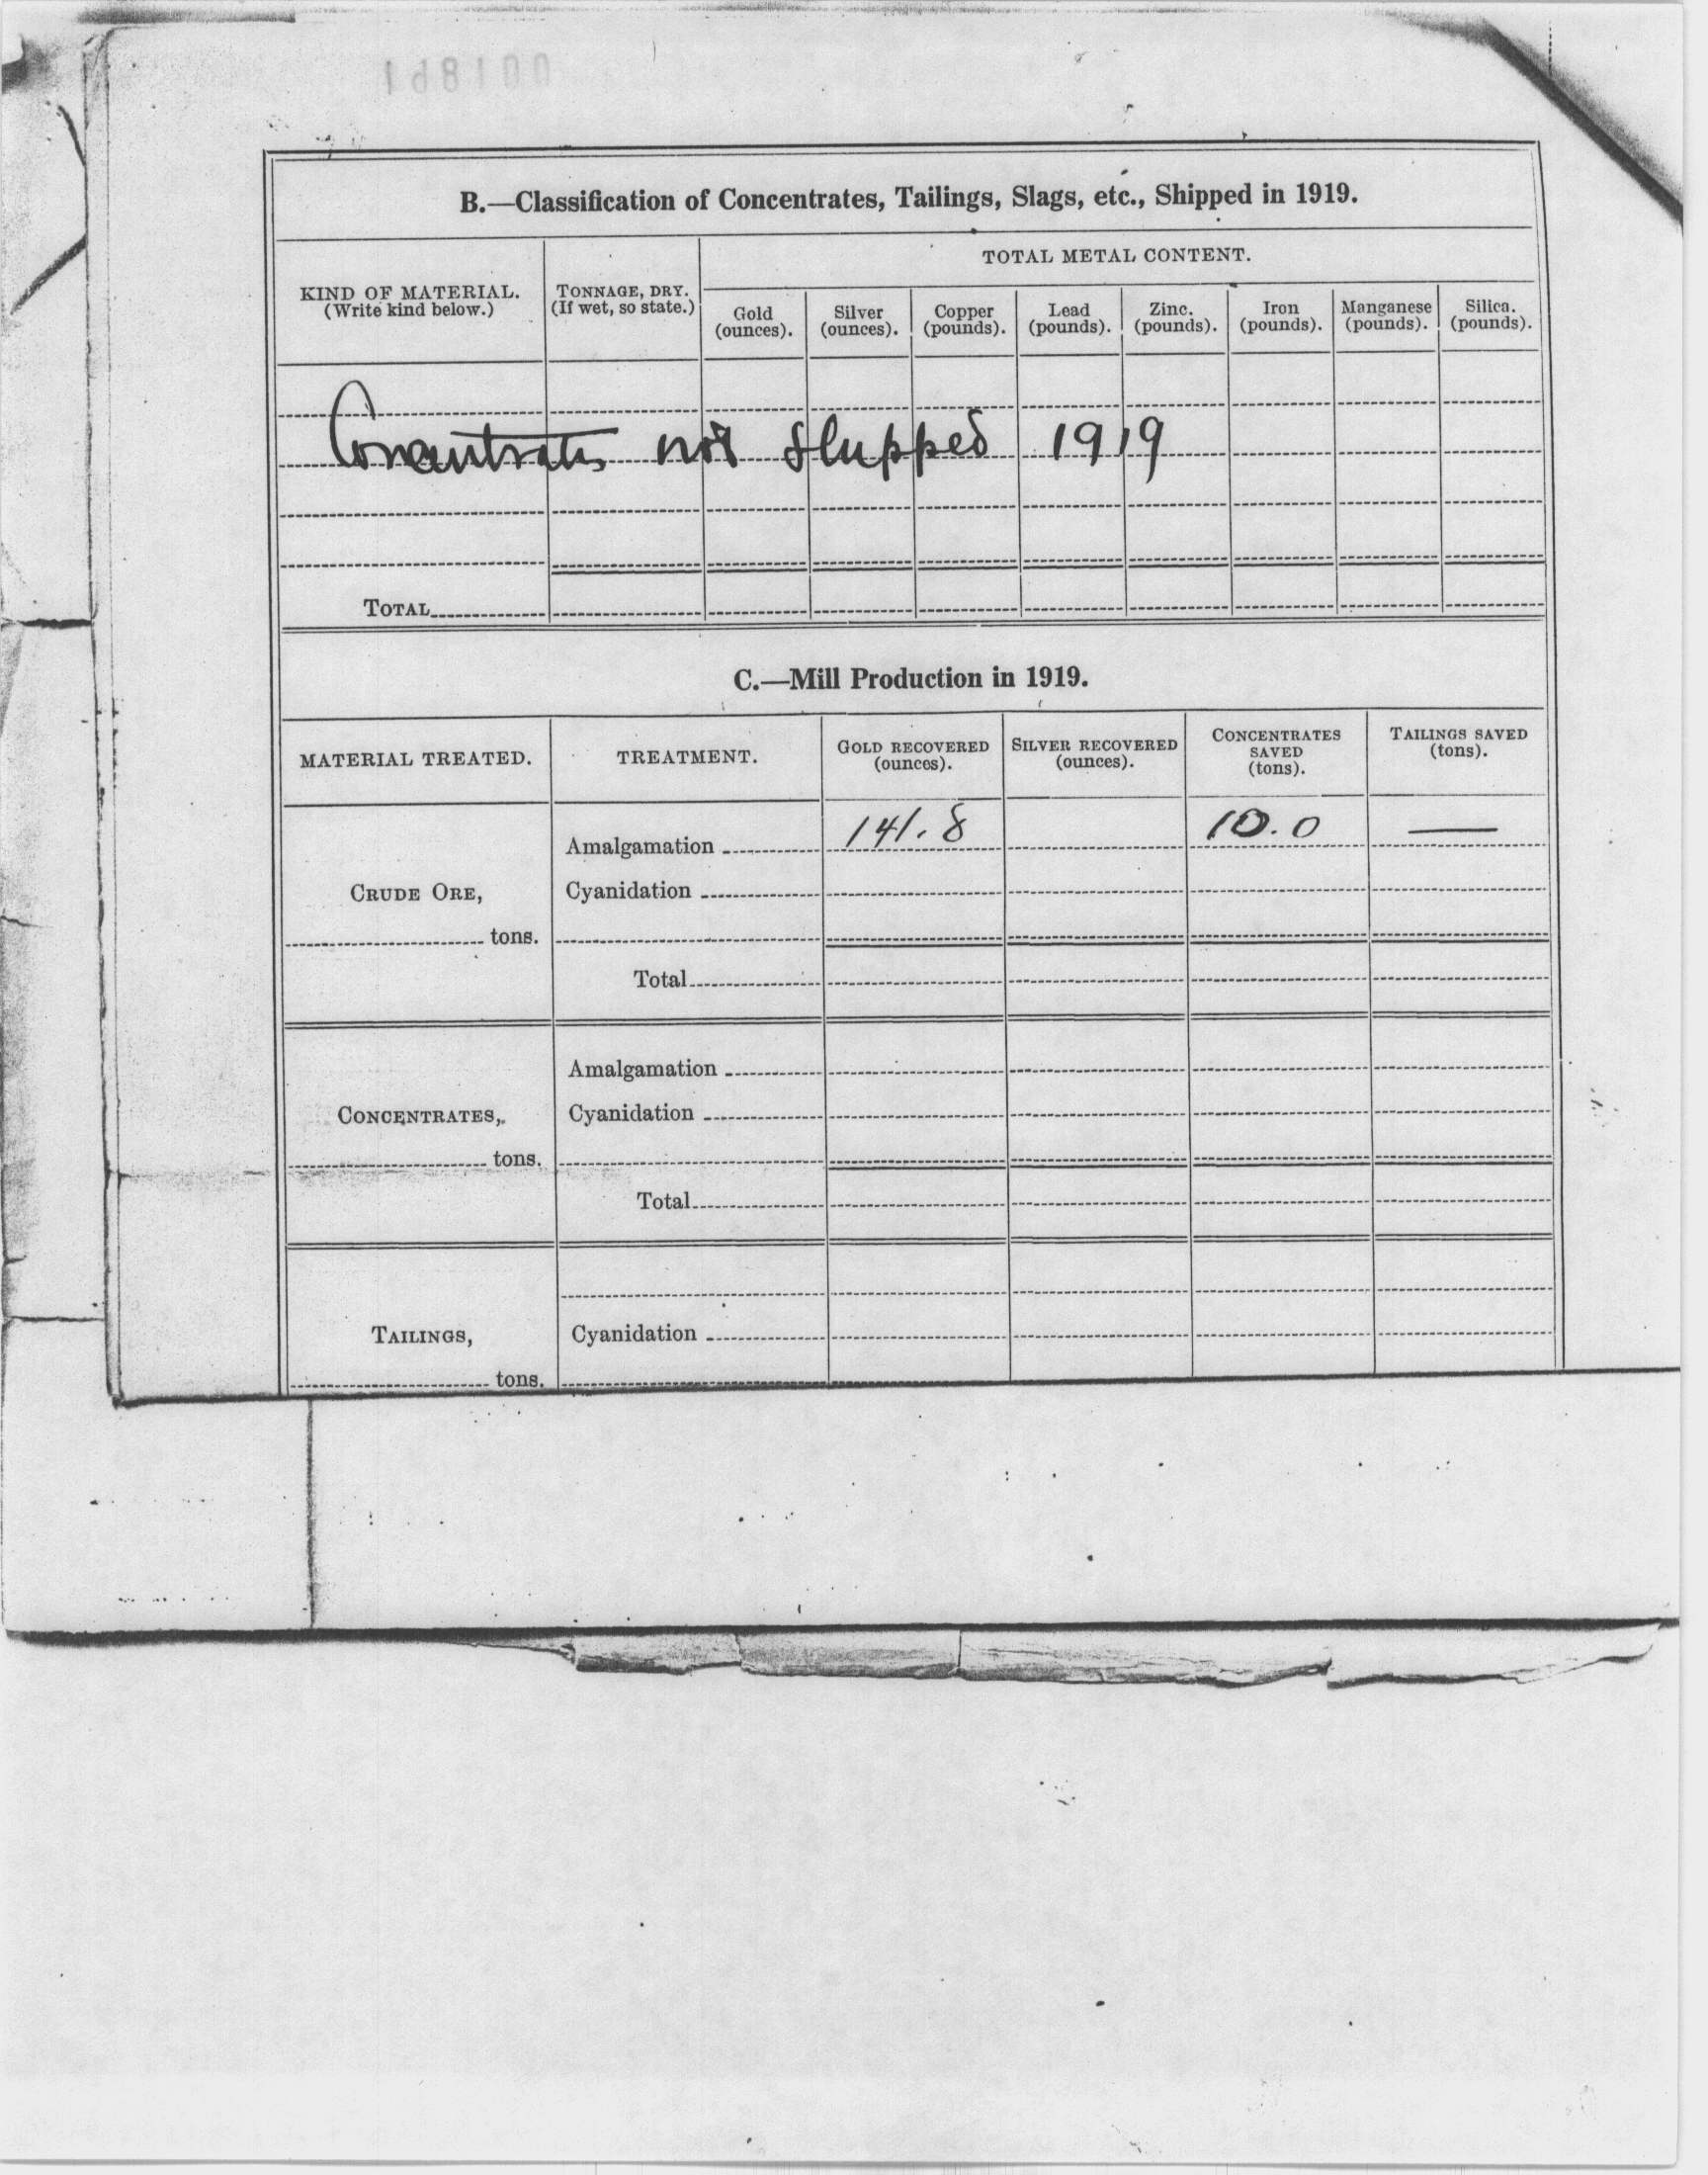 B.—Classification of Concentrates, Tailings, Slags, etc., Shipped in 1919.
KIND OF MATERIAL.
(Write kind below.)
TONNAGE, DRY.
(If wet, so state.)
TOTAL METAL CONTENT.
Gold
(ounces).
Silver
(ounces).
Copper
(pounds).
Lead
(pounds).
Zinc.
(pounds).
Iron
(pounds).
Manganese
(pounds).
Silica.
(pounds).
Concentrates not shipped 1919
TOTAL
C.—Mill Production in 1919.
MATERIAL TREATED.
TREATMENT.
GOLD RECOVERED
(ounces).
SILVER RECOVERED
(ounces).
CONCENTRATES
SAVED
(tons).
TAILINGS SAVED
(tons).
Amalgamation 141.8 10.0 —
CRUDE ORE,
Cyanidation
tons.
Total
Amalgamation
CONCENTRATES,
Cyanidation
tons.
Total
TAILINGS,
Cyanidation
tons.